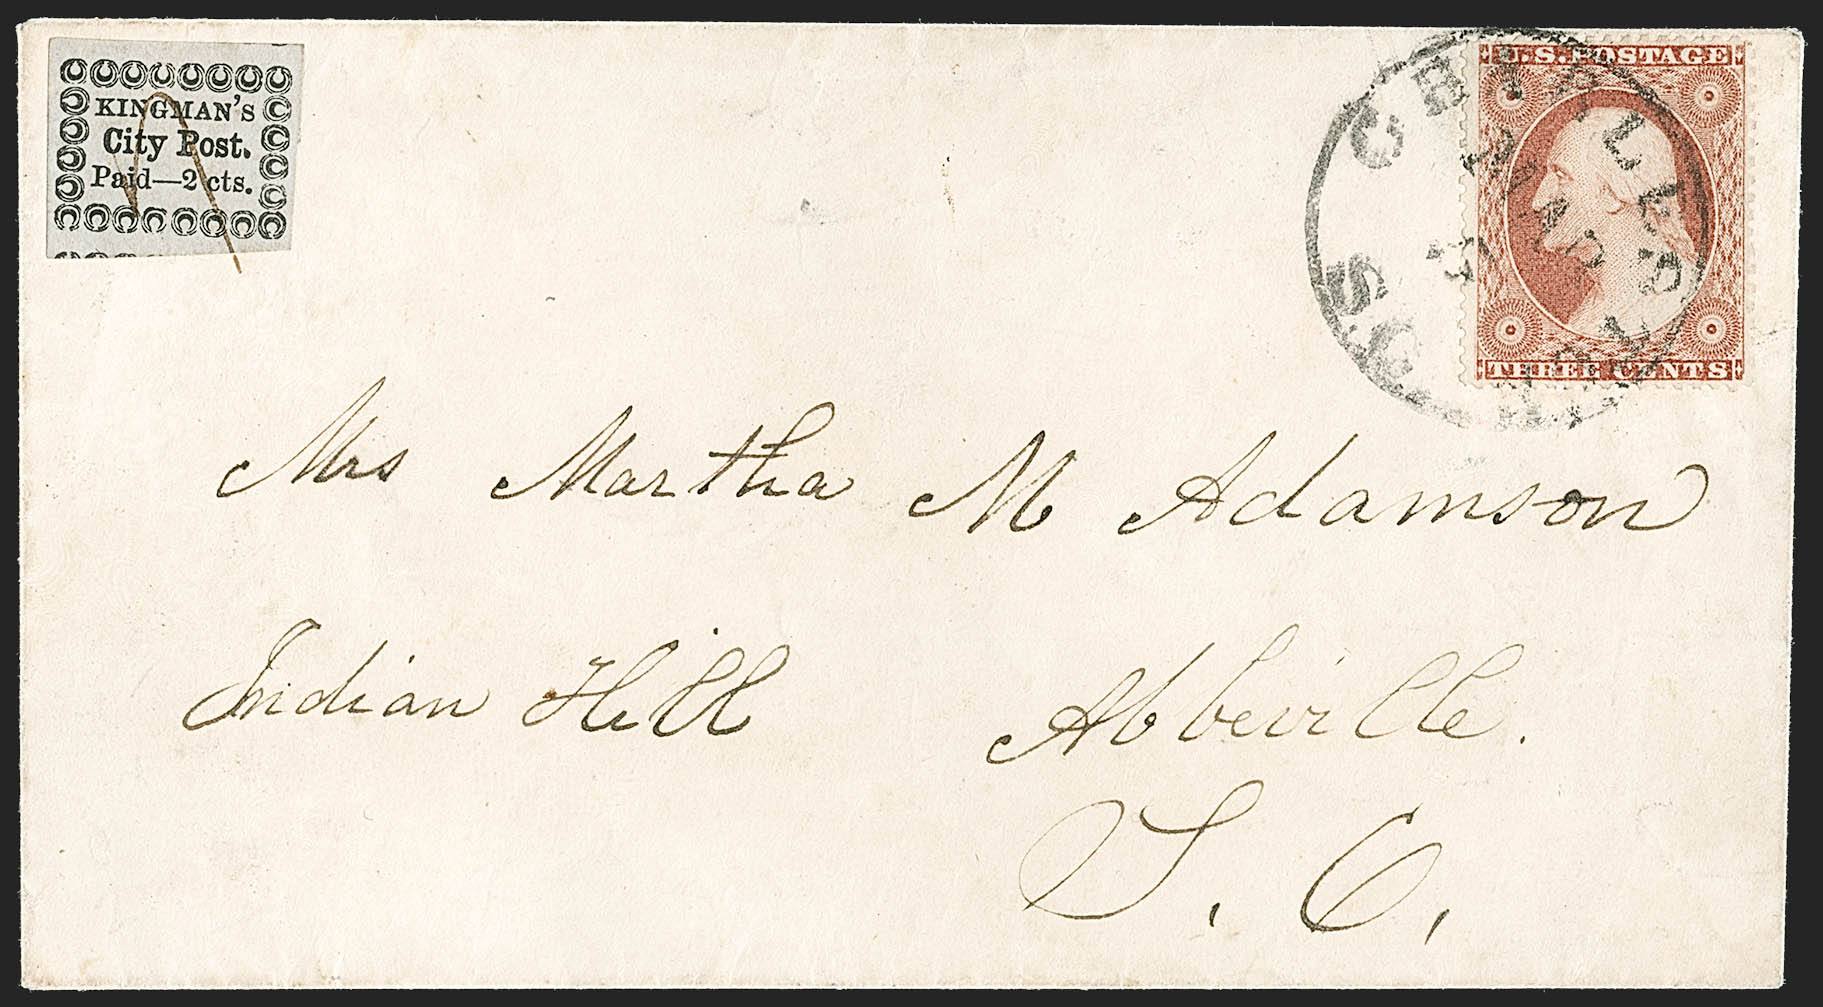 KINGMAN'S
City Post.
Paid—2 cts.
U.S. POSTAGE
THREE CENTS
CHARLESTON
S.C.
MAR
Mrs Martha M Adamson
Indian Hill Abbeville.
S. C.